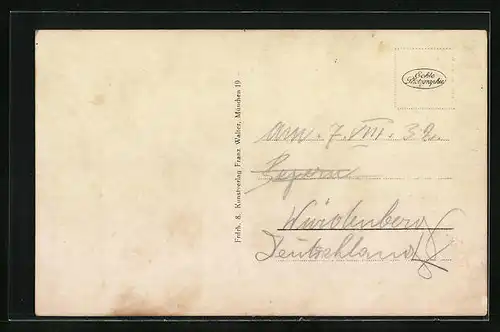 Echte
Photographie
Frdrk. 8. Kunstverlag Franz Walter, München 19
am. 7. VIII. 32.
Bayern
Deutschland